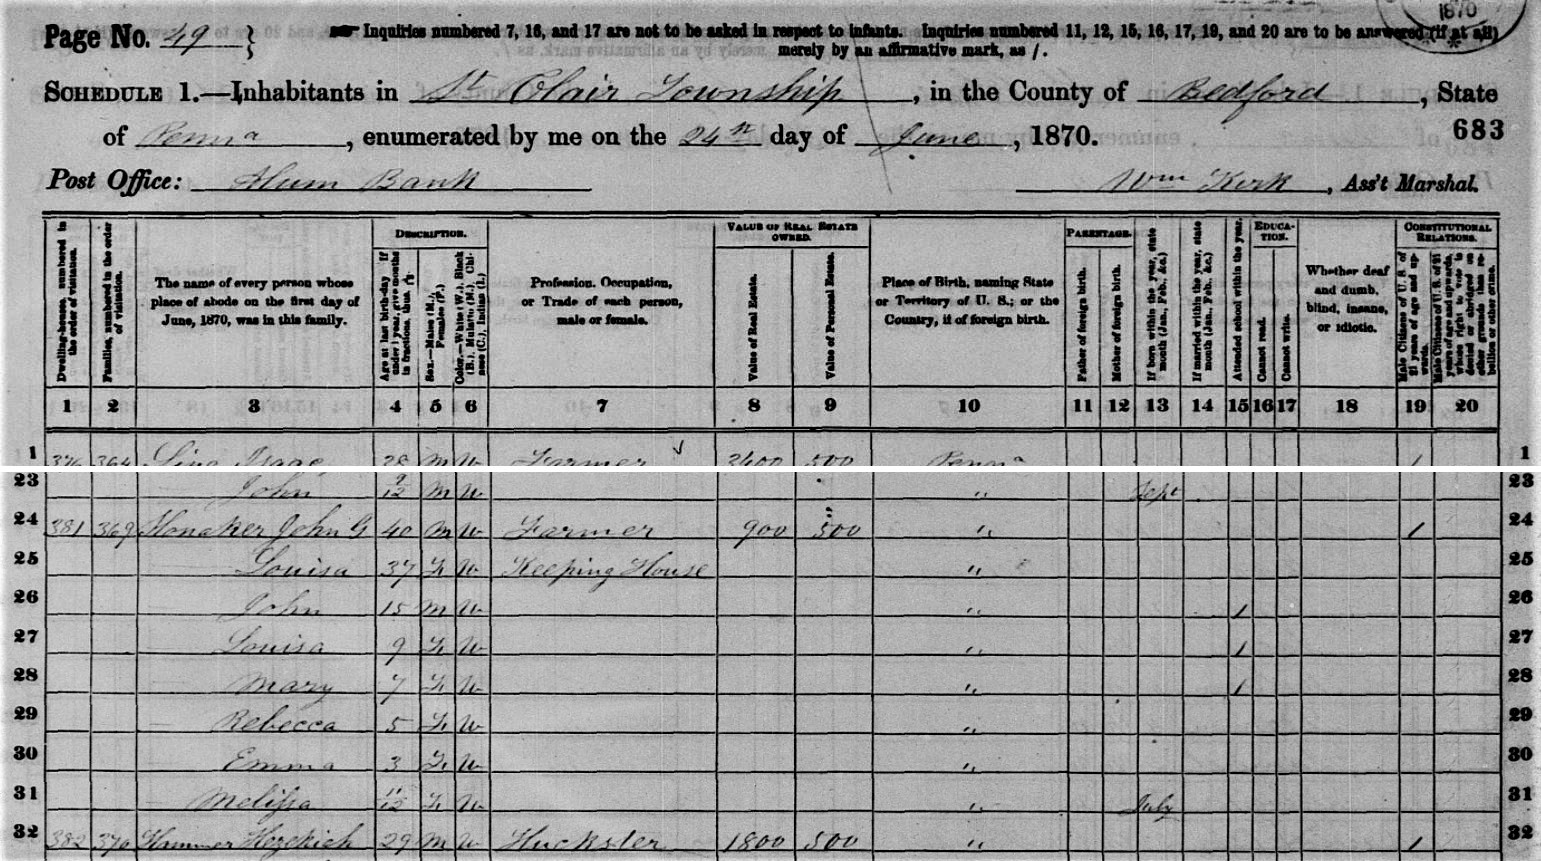 1870
Page No. 49 } Inquiries numbered 7, 16, and 17 are not to be asked in respect to infants. Inquiries numbered 11, 12, 15, 16, 17, 19, and 20 are to be answered (if at all)
merely by an affirmative mark, as /.
SCHEDULE 1.—Inhabitants in St Clair Township, in the County of Bedford, State
of Penna, enumerated by me on the 24th day of June, 1870.
683
Post Office: Alum Bank Wm Kirk, Ass't Marshal.
Dwelling-houses, numbered in the order of visitation.
Families, numbered in the order of visitation.
The name of every person whose place of abode on the first day of June, 1870, was in this family.
DESCRIPTION.
Age at last birth-day. If under 1 year, give months in fractions, thus, 3/12.
Sex.—Males (M.), Females (F.)
Color.—White (W.), Black (B.), Mulatto (M.), Chinese (C.), Indian (I.)
Profession, Occupation, or Trade of each person, male or female.
VALUE OF REAL ESTATE OWNED.
Value of Real Estate.
Value of Personal Estate.
Place of Birth, naming State or Territory of U. S.; or the Country, if of foreign birth.
PARENTAGE.
Father of foreign birth.
Mother of foreign birth.
If born within the year, state month (Jan., Feb., &c.)
If married within the year, state month (Jan., Feb., &c.)
Attended school within the year.
EDUCATION.
Cannot read.
Cannot write.
Whether deaf and dumb, blind, insane, or idiotic.
CONSTITUTIONAL RELATIONS.
Male Citizens of U. S. of 21 years of age and upwards.
Male Citizens of U. S. of 21 years of age and upwards, whose right to vote is denied or abridged on other grounds than rebellion or other crime.
1 2 3 4 5 6 7 8 9 10 11 12 13 14 15 16 17 18 19 20
1 376 364 Ling Isaac 28 M W Farmer 2400 500 Penna / 1
23 — John 9/12 M W " Sept 23
24 381 369 Honaker John G 40 M W Farmer 900 500 " / 24
25 — Louisa 37 F W Keeping House " 25
26 — John 15 M W " / 26
27 — Louisa 9 F W " / 27
28 — Mary 7 F W " / 28
29 — Rebecca 5 F W " 29
30 — Emma 3 F W " 30
31 — Melissa 11/12 F W " July 31
32 382 370 Hammer Hezekiah 29 M W Huckster 1800 500 " / 32